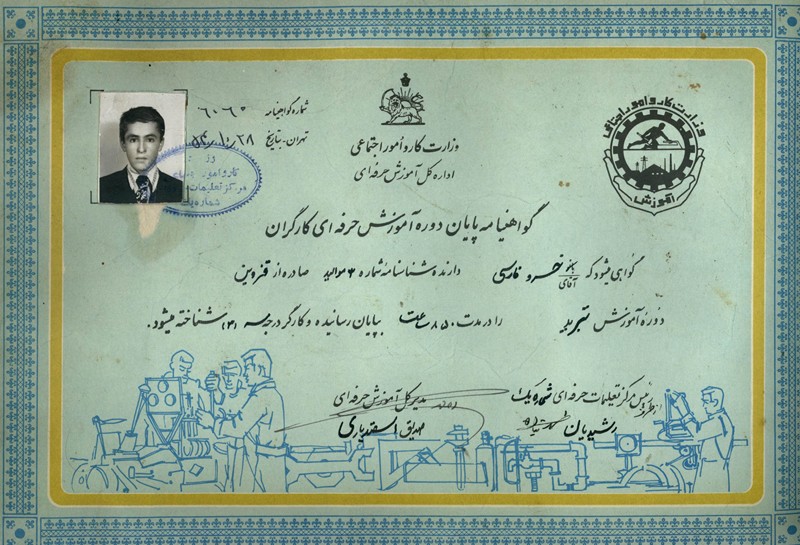 شماره گواهینامه ۶۰۶۰
تهران-بتاریخ
وزارت کار و امور اجتماعی
اداره کل آموزش حرفه‌ای
وزارت کار و امور اجتماعی
آموزش
گواهینامه پایان دوره آموزش حرفه‌ای کارگران
گواهی میشود که بانو/آقای خسرو فارسی دارنده شناسنامه شماره ۳ موالید صادره از قزوین
دوره آموزش را در مدت ۸۵۰ ساعت بپایان رسانیده و کارگر درجه سه (۳) شناخته میشود.
رئیس مرکز تعلیمات حرفه‌ای شماره یک
رشیدیان
مدیر کل آموزش حرفه‌ای
اسفندیاری
کار و امور
مرکز تعلیمات
شماره یک